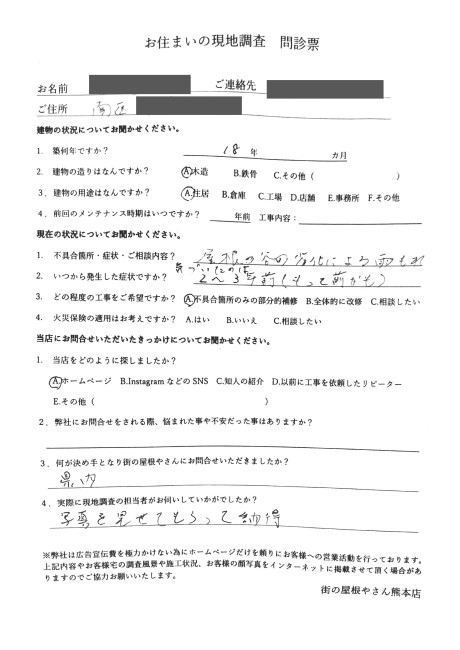 お住まいの現地調査　問診票
お名前　ご連絡先
ご住所　南区
建物の状況についてお聞かせください。
1. 築何年ですか？　18 年　カ月
2. 建物の造りはなんですか？　A.木造　B.鉄骨　C.その他（　）
3. 建物の用途はなんですか？　A.住居　B.倉庫　C.工場　D.店舗　E.事務所　F.その他
4. 前回のメンテナンス時期はいつですか？　年前　工事内容：
現在の状況についてお聞かせください。
1. 不具合箇所・症状・ご相談内容？　屋根の谷の劣化による雨もれ
2. いつから発生した症状ですか？　気づいたのは 2〜3年前(もっと前かも)
3. どの程度の工事をご希望ですか？　A.不具合箇所のみの部分的補修　B.全体的に改修　C.相談したい
4. 火災保険の適用はお考えですか？　A.はい　B.いいえ　C.相談したい
当店にお問合せいただいたきっかけについてお聞かせください。
1. 当店をどのように探しましたか？
A.ホームページ　B.Instagram などの SNS　C.知人の紹介　D.以前に工事を依頼したリピーター
E.その他（　）
2. 弊社にお問合せをされる際、悩まれた事や不安だった事はありますか？
3. 何が決め手となり街の屋根やさんにお問合せいただきましたか？
県内
4. 実際に現地調査の担当者がお伺いしていかがでしたか？
写真を見せてもらって納得
※弊社は広告宣伝費を極力かけない為にホームページだけを頼りにお客様への営業活動を行っております。
上記内容やお客様宅の調査風景や施工状況、お客様の顔写真をインターネットに掲載させて頂く場合があ
りますのでご協力お願いいたします。
街の屋根やさん熊本店